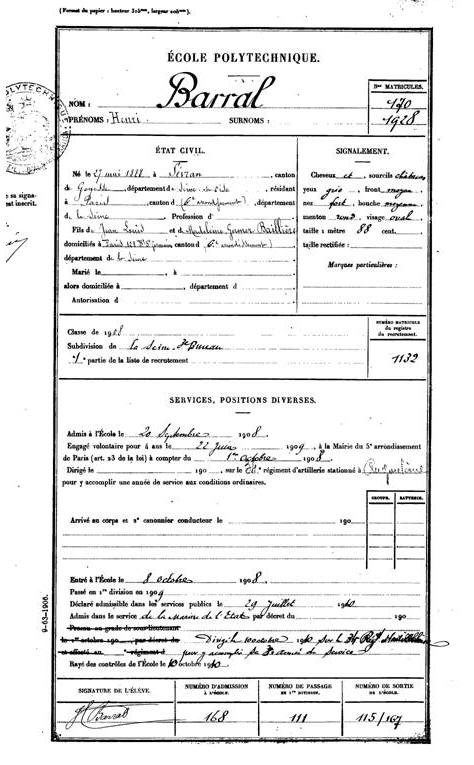 (Format du papier : hauteur 305mm, largeur 205mm).
ÉCOLE POLYTECHNIQUE.
NOM : Barral
PRÉNOMS : Henri SURNOMS :
Nos MATRICULES.
170
1928
POLYTECHN
e sa signa-
nt inscrit.
ÉTAT CIVIL.
Né le 27 mai 1888 à canton
de département de résidant
à canton d (6e arrondissement), département
de la Seine Profession d
Fils de Jean Louis et de Madeleine Baillière
domiciliés à Paris canton d (6e arrondissement)
département de la Seine
Marié le , à
alors domiciliée à , département d
Autorisation d
SIGNALEMENT.
Cheveux et sourcils châtains
yeux gris, front moyen
nez fort, bouche moyenne
menton rond, visage oval
taille 1 mètre 88 cent.
taille rectifiée :
Marques particulières :
Classe de 1908
Subdivision de la Seine, Bureau
1e partie de la liste de recrutement
NUMÉRO MATRICULE
du registre
du recrutement.
1132
SERVICES, POSITIONS DIVERSES.
Admis à l'École le 20 Septembre 1908.
Engagé volontaire pour 4 ans le 22 juin 1909, à la Mairie du 5e arrondissement
de Paris (art. 23 de la loi) à compter du 1er octobre 1908.
Dirigé le 190 , sur le régiment d'artillerie stationné à
pour y accomplir une année de service aux conditions ordinaires.
GROUPE. BATTERIE.
Arrivé au corps et 2e canonnier conducteur le 190
Entré à l'École le 8 octobre 1908.
Passé en 1re division en 1909
Déclaré admissible dans les services publics le 29 Juillet 1910
Admis dans le service de la Marine de l'Etat par décret du 190 .
Promu au grade de sous-lieutenant
le 1er octobre 190 , par décret du Dirigé le octobre 1910 sur le
et affecté au régiment d pour y accomplir sa année de service
Rayé des contrôles de l'École le 10 octobre 1910
9-63-1906.
SIGNATURE DE L'ÉLÈVE.
NUMÉRO D'ADMISSION
À L'ÉCOLE.
NUMÉRO DE PASSAGE
EN 1re DIVISION.
NUMÉRO DE SORTIE
DE L'ÉCOLE.
HBarral
168
111
115/167